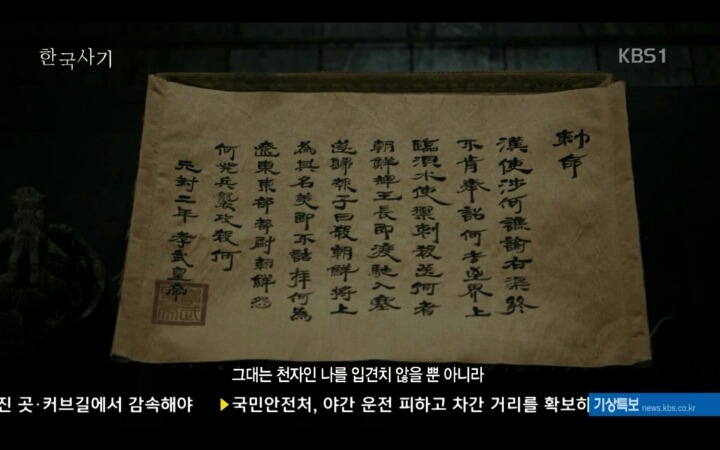 한국사기
KBS1
勅命
漢使涉何譙諭右渠終
不肯奉詔何去至界上
臨浿水使禦刺殺送何者
朝鮮裨王長即渡馳入塞
遂歸報子曰殺朝鮮將上
為其名美即不詰拜何為
遼東東部都尉朝鮮怨
何發兵襲攻殺何
元封二年 孝武皇帝
그대는 천자인 나를 입견치 않을 뿐 아니라
진 곳·커브길에서 감속해야 ▶국민안전처, 야간 운전 피하고 차간 거리를 확보하
기상특보 news.kbs.co.kr